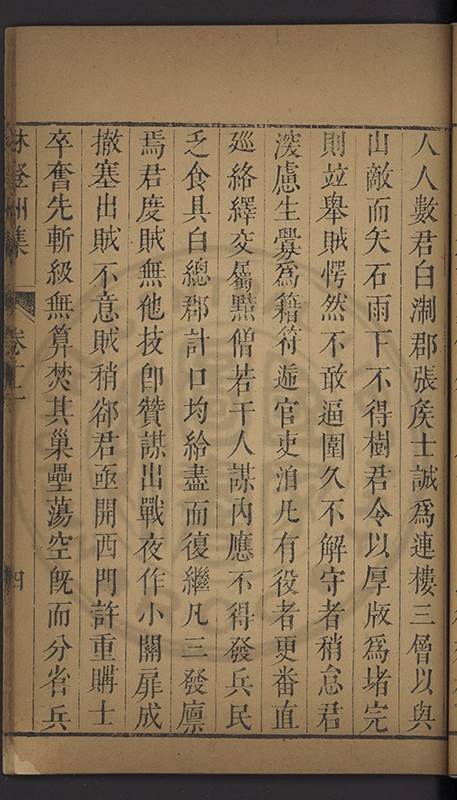 人人數君白制郡張矦士誠爲連樓三層以與
山敵而矢石雨下不得樹君令以厚版爲堵完
則竝舉賊愕然不敢逼圍久不解守者稍怠君
淡慮生釁爲籍符遞官吏洎凡有役者更番直
廵絡繹交屬㸃僧若干人謀内應不得發兵民
乏食具白總郡計口均給盡而復繼凡三發廪
焉君度賊無他技卽贊謀出戰夜作小關扉成
撤塞出賊不意賊稍郤君亟開西門許重購士
卒奮先斬級無算焚其巢壘蕩空旣而分省兵
林登州集 卷十二 四